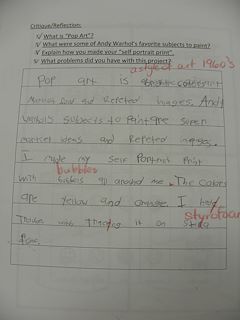 Critique/Reflection:
√ What is "Pop Art"?
√ What were some of Andy Warhol's favorite subjects to paint?
√ Explain how you made your "self portrait print".
√ What problems did you have with this project?
a style of art 1960's
Pop art is
and Repeted images. Andy
Warhol's subjects to Paint are super
market ideas and Repeted images.
I made my Self Portrait Print
bubbles
with all around me. The Colors
are Yellow and orange. I had
styrofoam
Trouble with Tracing it on